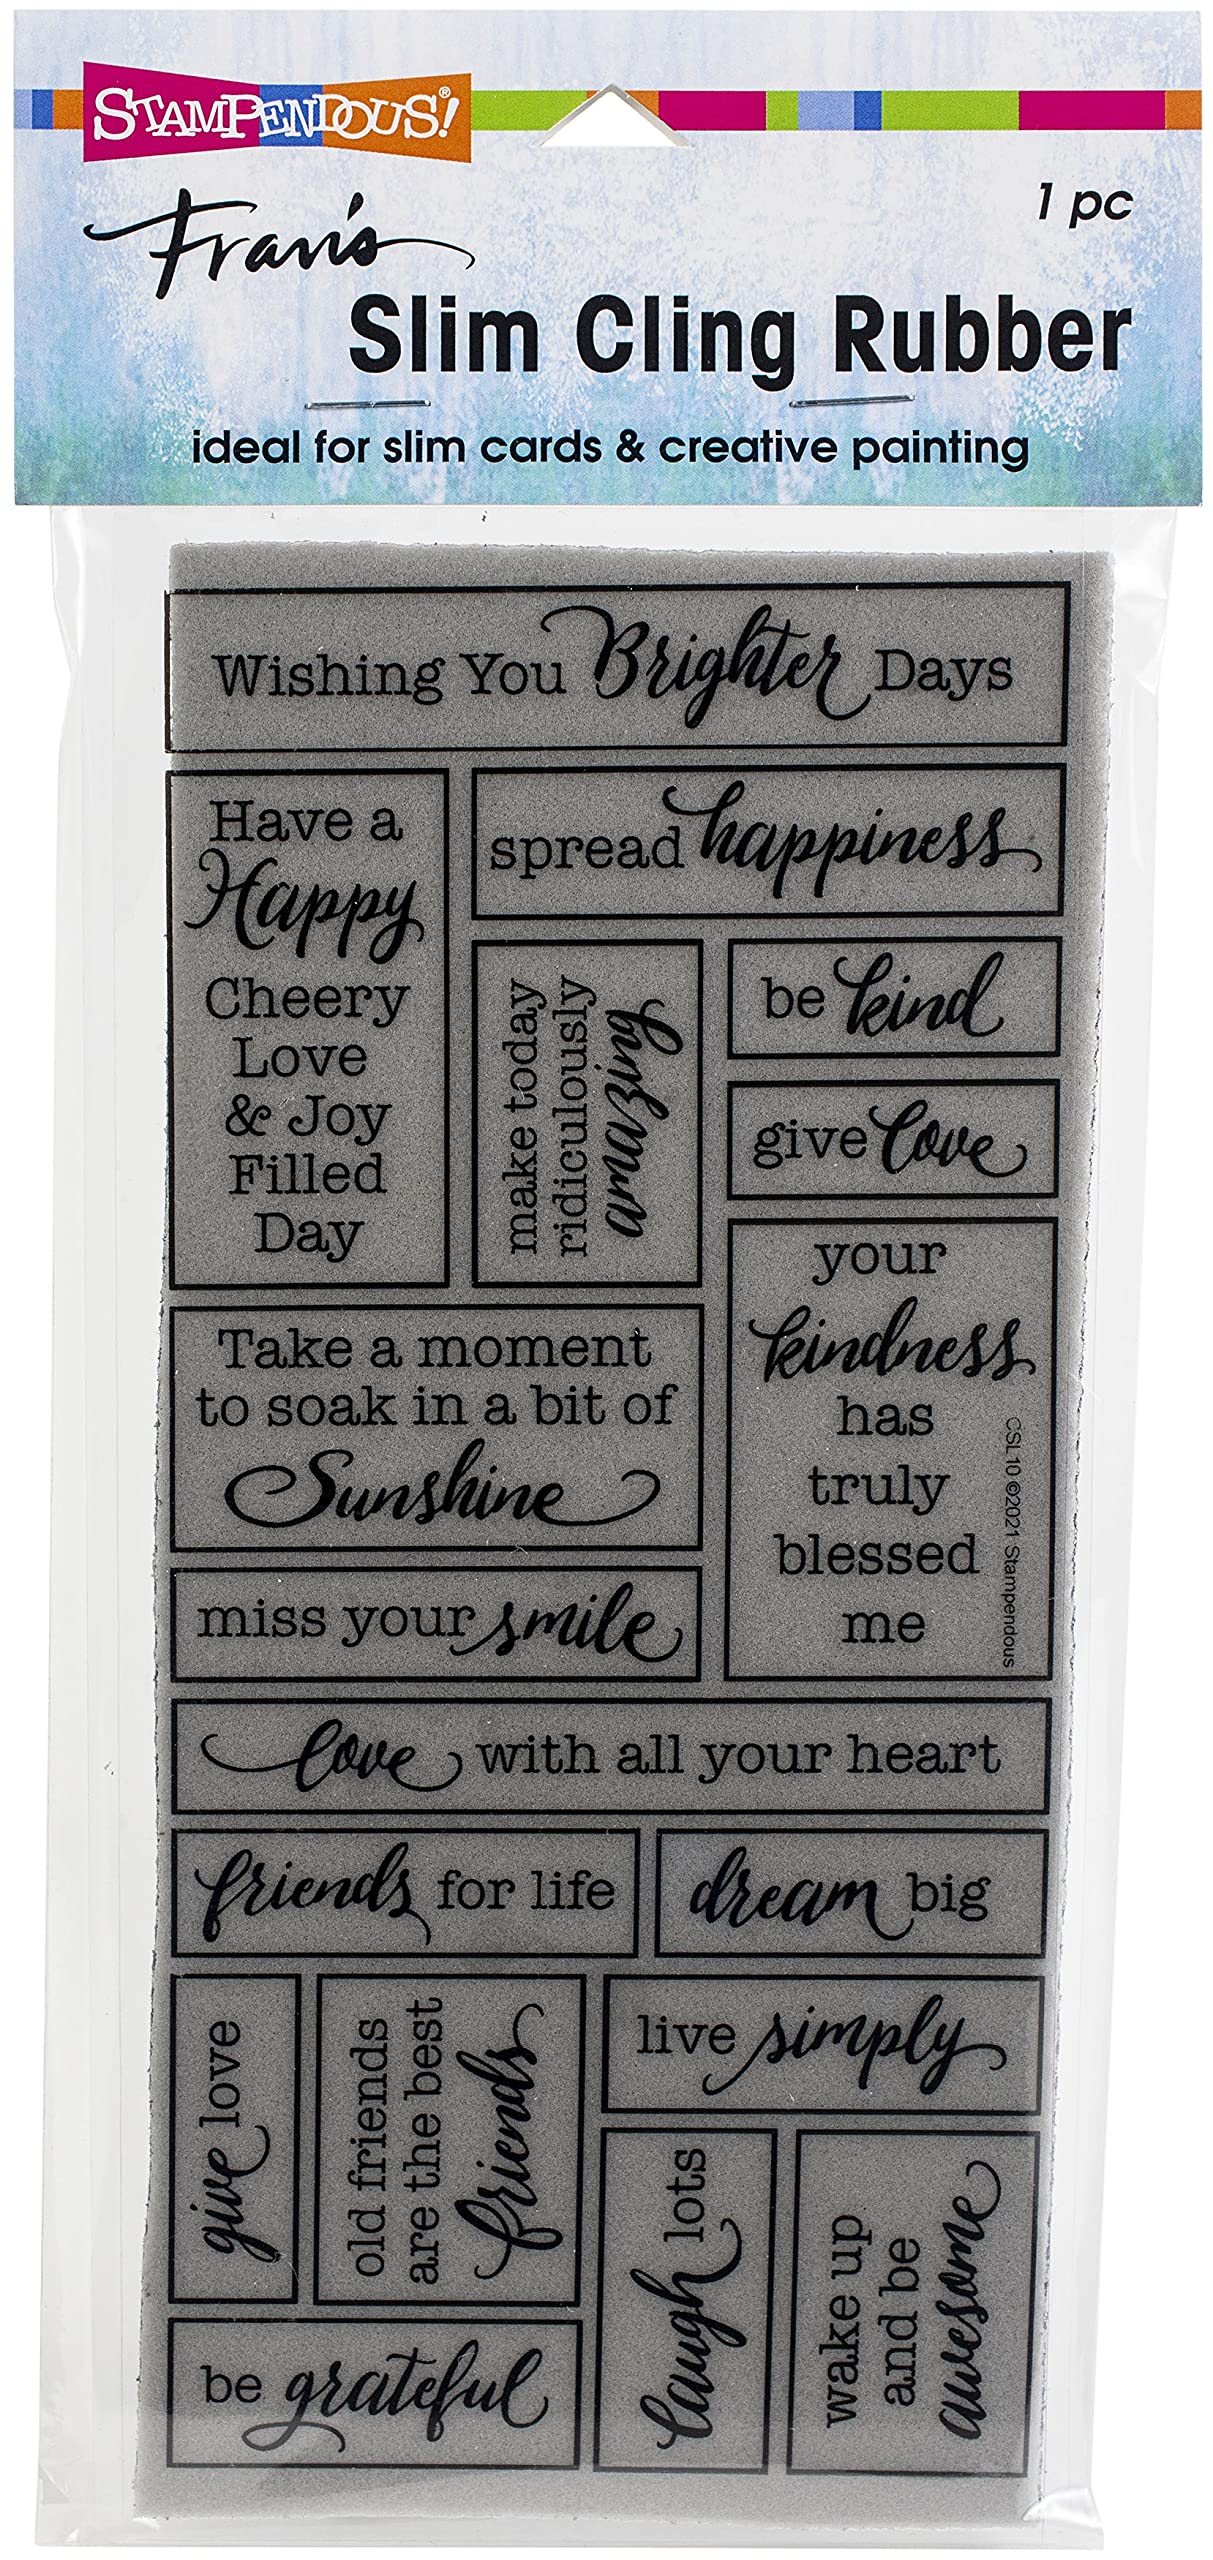 STAMPENDOUS!®
1 pc
Fran's
Slim Cling Rubber
ideal for slim cards & creative painting
Wishing You Brighter Days
Have a
Happy
Cheery
Love
& Joy
Filled
Day
spread happiness
make today
ridiculously
amazing
be kind
give love
your
kindness
has
truly
blessed
me
CSL10 ©2021 Stampendous
Take a moment
to soak in a bit of
Sunshine
miss your smile
love with all your heart
friends for life
dream big
give love
old friends
are the best
friends
live simply
laugh lots
wake up
and be
awesome
be grateful